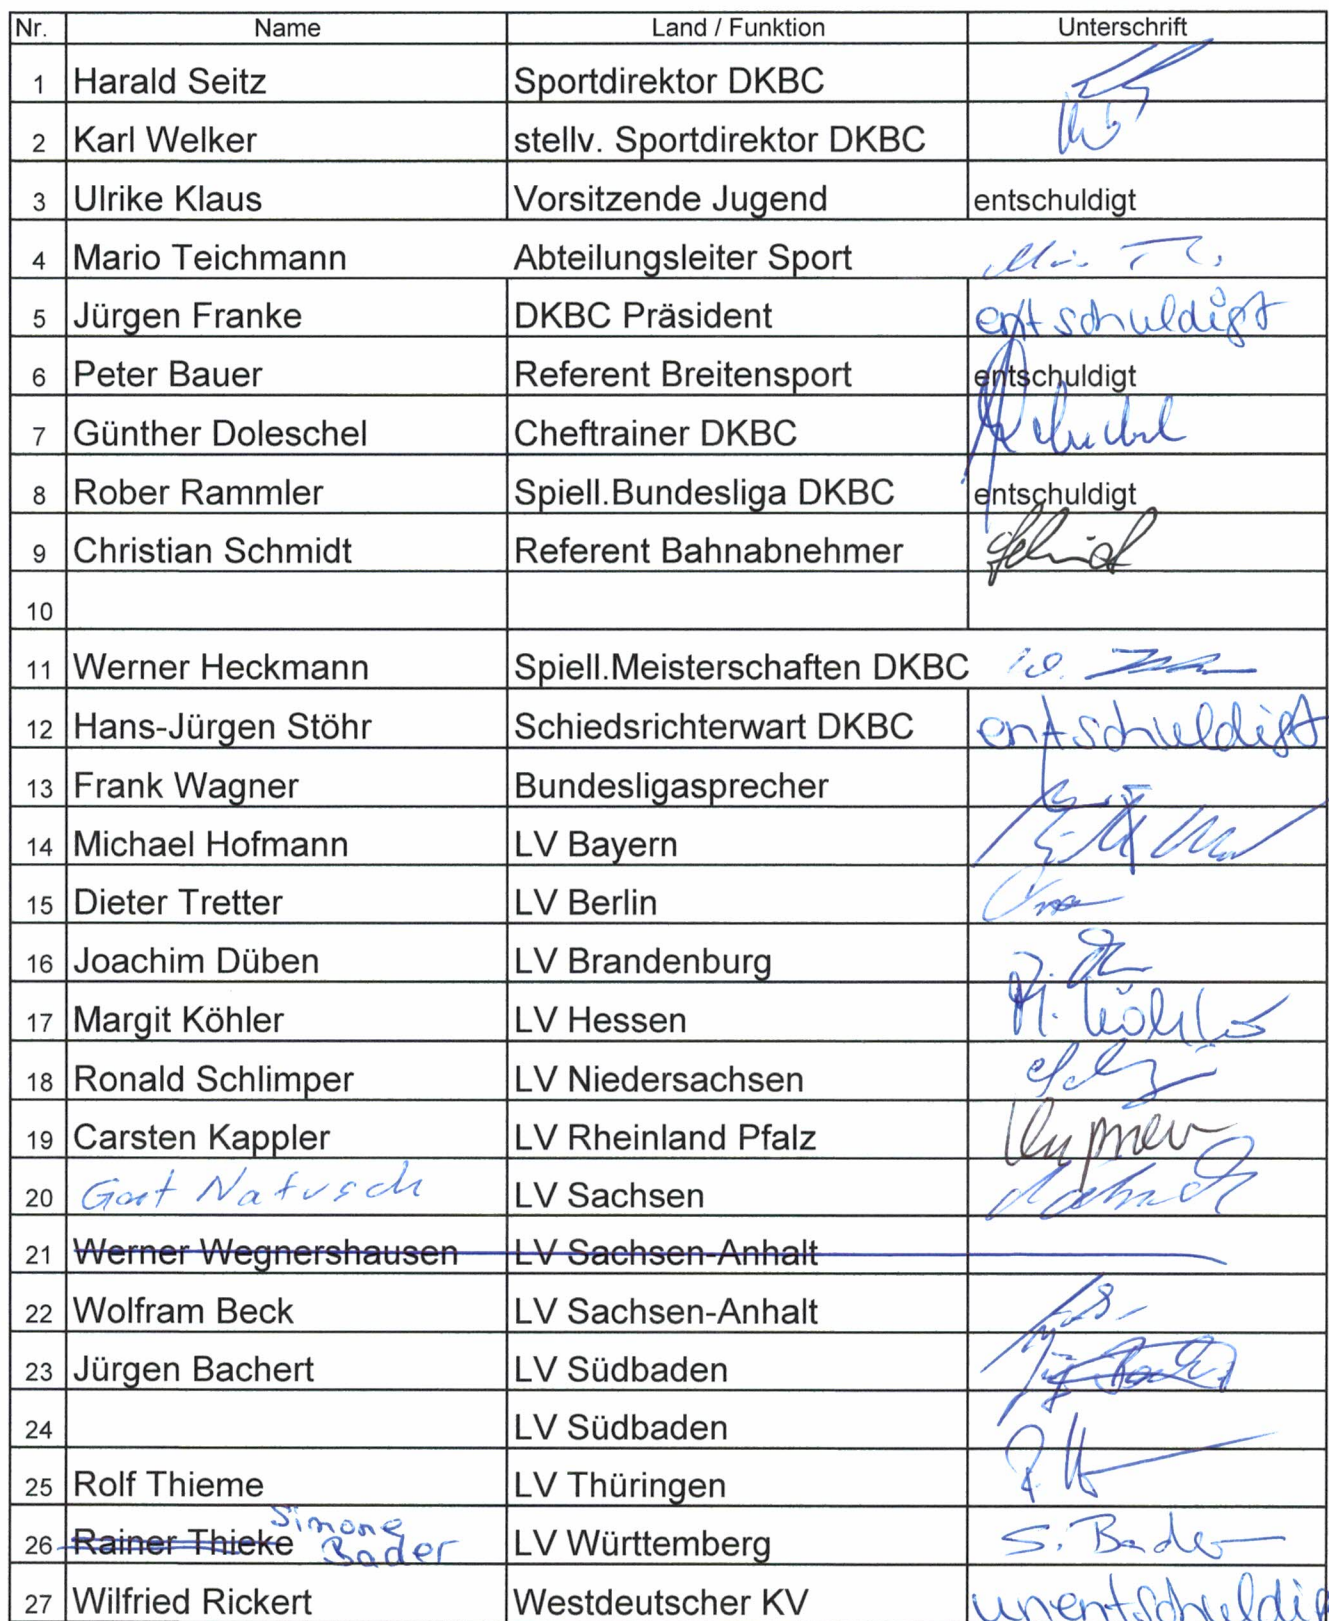 Nr. Name Land / Funktion Unterschrift
1 Harald Seitz Sportdirektor DKBC
2 Karl Welker stellv. Sportdirektor DKBC
3 Ulrike Klaus Vorsitzende Jugend entschuldigt
4 Mario Teichmann Abteilungsleiter Sport
5 Jürgen Franke DKBC Präsident entschuldigt
6 Peter Bauer Referent Breitensport entschuldigt
7 Günther Doleschel Cheftrainer DKBC
8 Rober Rammler Spiell.Bundesliga DKBC entschuldigt
9 Christian Schmidt Referent Bahnabnehmer
10
11 Werner Heckmann Spiell.Meisterschaften DKBC
12 Hans-Jürgen Stöhr Schiedsrichterwart DKBC entschuldigt
13 Frank Wagner Bundesligasprecher
14 Michael Hofmann LV Bayern
15 Dieter Tretter LV Berlin
16 Joachim Düben LV Brandenburg
17 Margit Köhler LV Hessen M. Köhler
18 Ronald Schlimper LV Niedersachsen
19 Carsten Kappler LV Rheinland Pfalz
20 Natusch LV Sachsen
21 Werner Wegnershausen LV Sachsen-Anhalt
22 Wolfram Beck LV Sachsen-Anhalt
23 Jürgen Bachert LV Südbaden
24 LV Südbaden
25 Rolf Thieme LV Thüringen
26 Rainer Thieke Simone Bader LV Württemberg S. Bader
27 Wilfried Rickert Westdeutscher KV unentschuldig